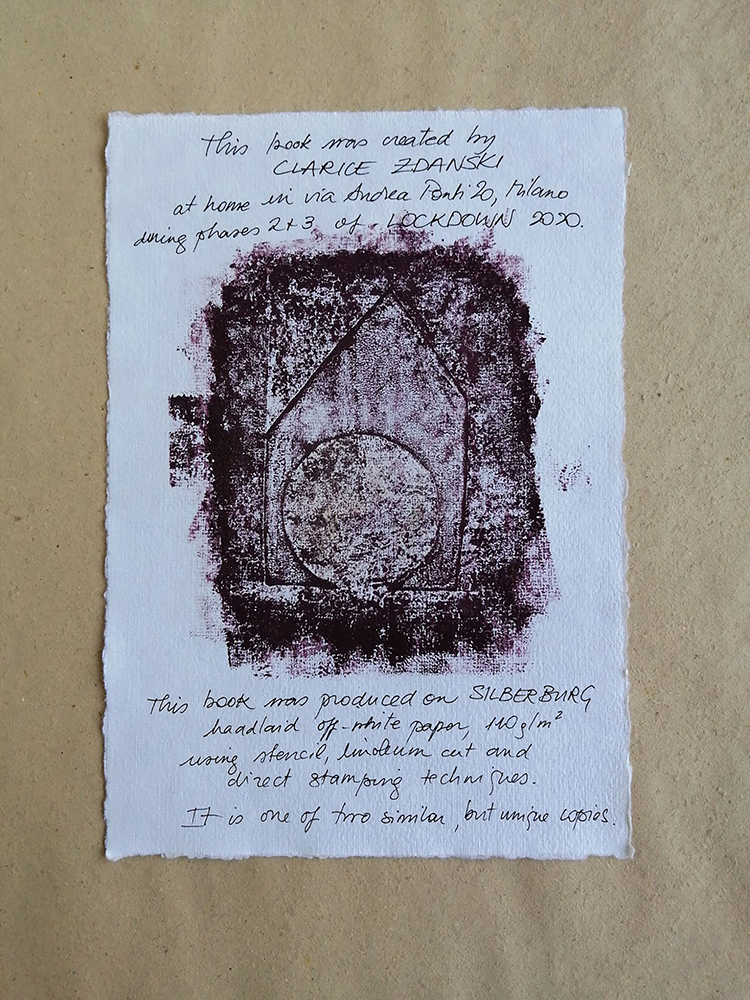 This book was created by
CLARICE ZDANSKI
at home in via Andrea Ponti 20, Milano
during phases 2+3 of LOCKDOWN 2020.
This book was produced on SILBERBURG
haadlaid off-white paper, 110 g/m²
using stencil, linoleum cut and
direct stamping techniques.
IT is one of two similar, but unique copies.